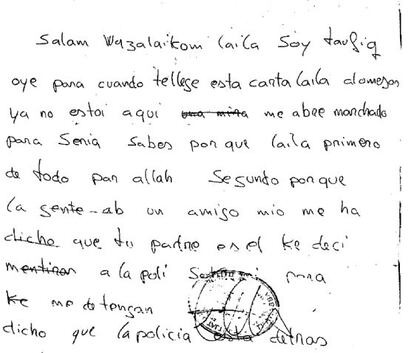 Salam Wazalaikom laila Soy taufiq
oye para cuando tellege esta carta laila alomejor
ya no estoi aqui una mina me abre marchado
para Senia Sabes por que laila primero
de todo por allah Segundo por que
la gente-ab un amigo mio me ha
dicho que tu padre es el ke deci
mentiras a la poli para
ke me detengan
dicho que la policia esta detras